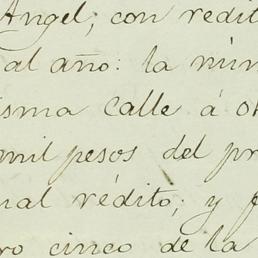 Angel; con rédit
al año: la núm
isma calle á o
mil pesos del pr
ual rédito; y f
ro cinco de la